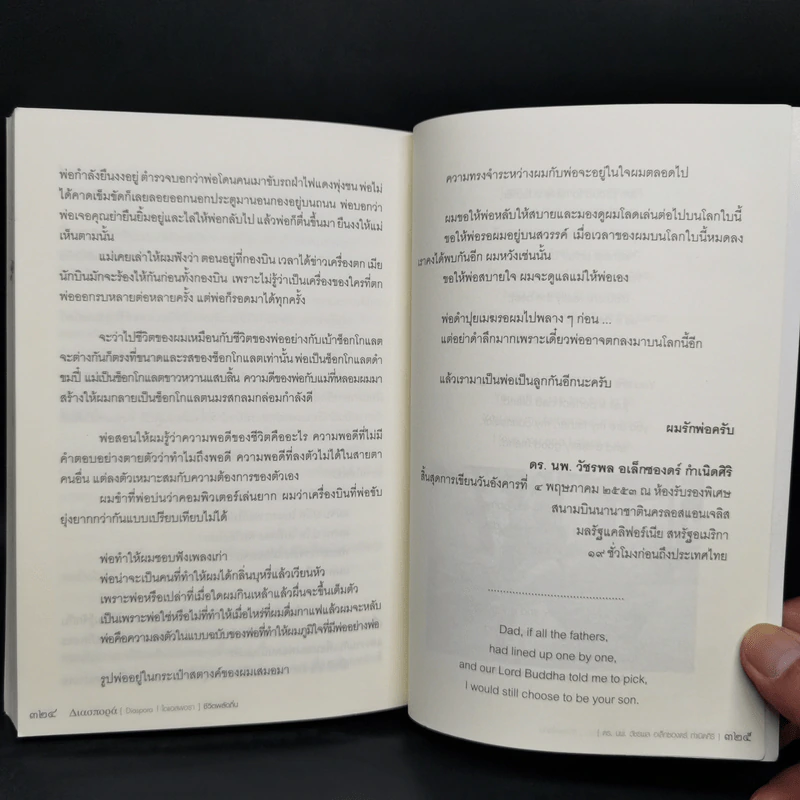 พ่อกำลังยืนงงอยู่ ตำรวจบอกว่าพ่อโดนคนเมาขับรถฝ่าไฟแดงพุ่งชน พ่อไม่
ได้คาดเข็มขัดก็เลยลอยออกนอกประตูมานอนกองอยู่บนถนน พ่อบอกว่า
พ่อเจอคุณย่ายืนยิ้มอยู่และไล่ให้พ่อกลับไป แล้วพ่อก็ตื่นขึ้นมา ยืนงงให้แม่
เห็นตามนั้น
แม่เคยเล่าให้ผมฟังว่า ตอนอยู่ที่กองบิน เวลาได้ข่าวเครื่องตก เมีย
นักบินมักจะร้องไห้กันก่อนทั้งกองบิน เพราะไม่รู้ว่าเป็นเครื่องของใครที่ตก
พ่อออกรบหลายต่อหลายครั้ง แต่พ่อก็รอดมาได้ทุกครั้ง
จะว่าไปชีวิตของผมเหมือนกับชีวิตของพ่ออย่างกับเบ้าช็อกโกแลต
จะต่างกันก็ตรงที่ขนาดและรสของช็อกโกแลตเท่านั้น พ่อเป็นช็อกโกแลตดำ
ขมปี๋ แม่เป็นช็อกโกแลตขาวหวานแสบลิ้น ความดีของพ่อกับแม่ที่หลอมผมมา
สร้างให้ผมกลายเป็นช็อกโกแลตนมรสกลมกล่อมกำลังดี
พ่อสอนให้ผมรู้ว่าความพอดีของชีวิตคืออะไร ความพอดีที่ไม่มี
คำตอบอย่างตายตัวว่าทำไมถึงพอดี ความพอดีที่ลงตัวไม่ได้ในสายตา
คนอื่น แต่ลงตัวเหมาะสมกับความต้องการของตัวเอง
ผมขำที่พ่อบ่นว่าคอมพิวเตอร์เล่นยาก ผมว่าเครื่องบินที่พ่อขับ
ยุ่งยากกว่ากันแบบเปรียบเทียบไม่ได้
พ่อทำให้ผมชอบฟังเพลงเก่า
พ่อน่าจะเป็นคนที่ทำให้ผมได้กลิ่นบุหรี่แล้วเวียนหัว
เพราะพ่อหรือเปล่าที่เมื่อใดผมกินเหล้าแล้วผื่นจะขึ้นเต็มตัว
เป็นเพราะพ่อใช่หรือไม่ที่ทำให้เมื่อไหร่ที่ผมดื่มกาแฟแล้วผมจะหลับ
พ่อคือความลงตัวในแบบฉบับของพ่อที่ทำให้ผมภูมิใจที่มีพ่ออย่างพ่อ
รูปพ่ออยู่ในกระเป๋าสตางค์ของผมเสมอมา
๓๒๔ Διασπορά [ Diaspora | ไดแอสพอรา ] ชีวิตพลัดถิ่น
ความทรงจำระหว่างผมกับพ่อจะอยู่ในใจผมตลอดไป
ผมขอให้พ่อหลับให้สบายและมองดูผมโลดเล่นต่อไปบนโลกใบนี้
ขอให้พ่อรอผมอยู่บนสวรรค์ เมื่อเวลาของผมบนโลกใบนี้หมดลง
เราคงได้พบกันอีก ผมหวังเช่นนั้น
ขอให้พ่อสบายใจ ผมจะดูแลแม่ให้พ่อเอง
พ่อดำปุยเมฆรอผมไปพลาง ๆ ก่อน ...
แต่อย่าดำลึกมากเพราะเดี๋ยวพ่ออาจตกลงมาบนโลกนี้อีก
แล้วเรามาเป็นพ่อเป็นลูกกันอีกนะครับ
ผมรักพ่อครับ
ดร. นพ. วัชรพล อเล็กซองดร์ กำเนิดศิริ
สิ้นสุดการเขียนวันอังคารที่ ๔ พฤษภาคม ๒๕๕๓ ณ ห้องรับรองพิเศษ
สนามบินนานาชาตินครลอสแอนเจลิส
มลรัฐแคลิฟอร์เนีย สหรัฐอเมริกา
๑๙ ชั่วโมงก่อนถึงประเทศไทย
....................................
Dad, if all the fathers,
had lined up one by one,
and our Lord Buddha told me to pick,
I would still choose to be your son.
[ ดร. นพ. วัชรพล อเล็กซองดร์ กำเนิดศิริ ] ๓๒๕